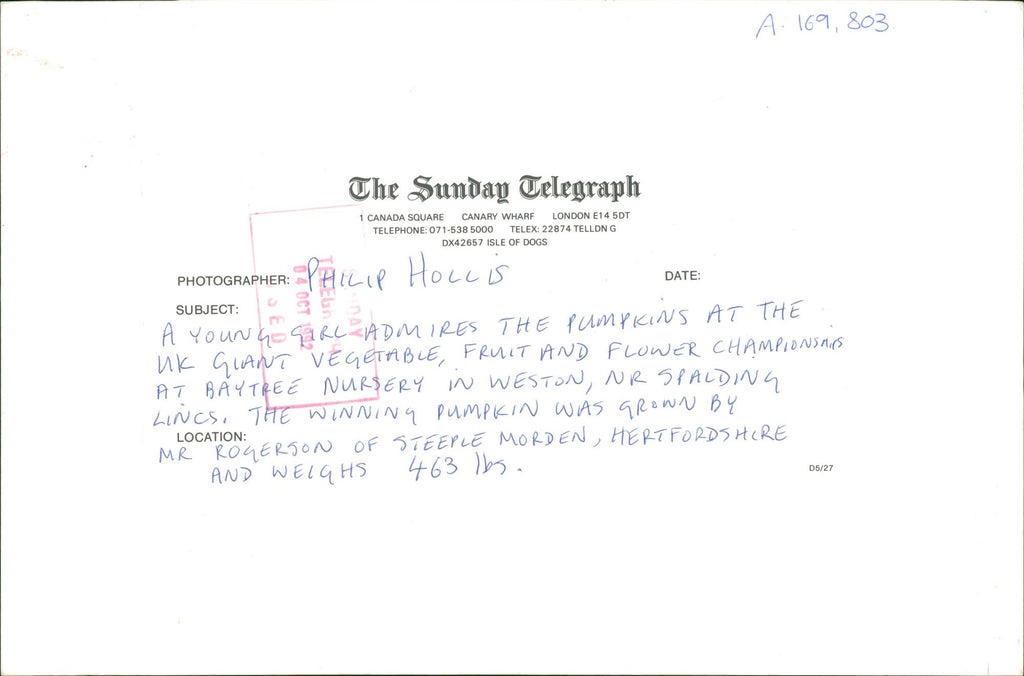 A. 169,803
The Sunday Telegraph
1 CANADA SQUARE CANARY WHARF LONDON E14 5DT
TELEPHONE: 071-538 5000 TELEX: 22874 TELLDN G
DX42657 ISLE OF DOGS
PHOTOGRAPHER: PHILIP HOLLIS DATE:
SUBJECT:
A YOUNG GIRL ADMIRES THE PUMPKINS AT THE
UK GIANT VEGETABLE, FRUIT AND FLOWER CHAMPIONSHIPS
AT BAYTREE NURSERY IN WESTON, NR SPALDING
LINCS. THE WINNING PUMPKIN WAS GROWN BY
LOCATION:
MR ROGERSON OF STEEPLE MORDEN, HERTFORDSHIRE
AND WEIGHS 463 lbs.
D5/27
SUNDAY
TELEGRAPH
04 OCT 1992
USED